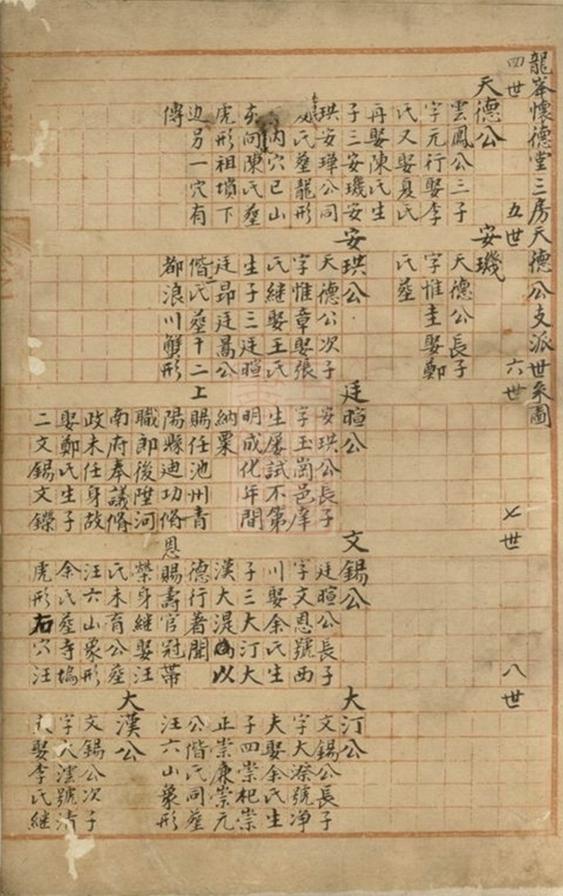 龍峯懷德堂三房天德公支派世系圖
四世
五世
六世
七世
八世
天德公
雲鳳公三子
字元行娶李
氏又娶夏氏
再娶陳氏生
子三安璣安
珙安瑋公同
氏葬龍形
內穴已山
亥向陳氏葬
虎形祖墳下
边另一穴有
傳
安璣
天德公長子
字惟圭娶鄭
氏葬
安珙公
天德公次子
字惟章娶張
氏継娶王氏
生子三廷暄
廷昂廷暠公
偕氏葬十二
都浪川蟹形
廷暄公
安珙公長子
字玉崗邑庠
生屢試不第
明成化年間
納粟
上賜任池州青
陽縣迪功脩
職郎後陞河
南府奉議脩
政未任身故
娶鄭氏生子
二文錫文鑠
文錫公
廷暄公長子
字文恩號西
川娶余氏生
子三大汀大
漢大湜公以
德行著聞
恩賜壽官冠帯
榮身継娶汪
氏未育公葬
汪六山象形
余氏葬寺塢
虎形右穴汪
大汀公
文錫公長子
字大滌號净
夫娶余氏生
子四崇杞崇
正崇亷崇元
公偕氏同葬
汪六山象形
大漢公
文錫公次子
字大澐號清
夫娶李氏継